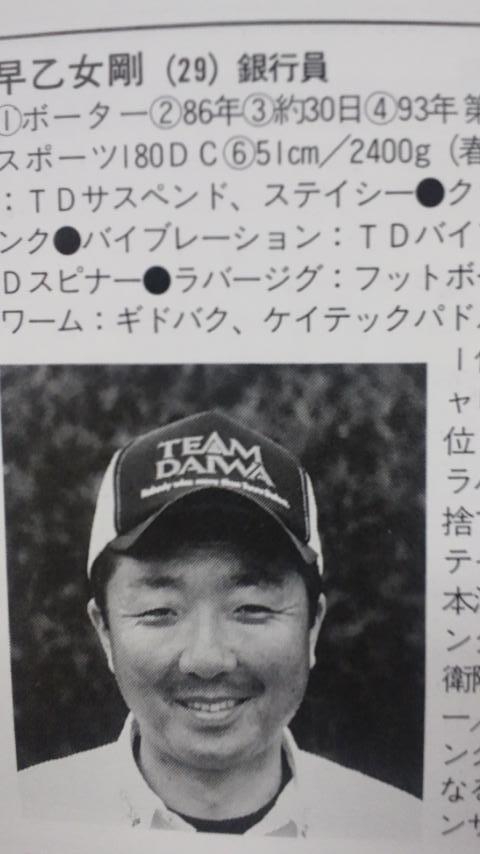 早乙女剛(29)銀行員
①ボーター②86年③約30日④93年第
スポーツ180DC⑥51cm/2400g(春
:TDサスペンド、ステイシー●ク
ンク●バイブレーション:TDバイブ
Dスピナー●ラバージグ:フットボー
ワーム:ギドバグ、ケイテックパド
TEAM
DAIWA
位
ラバ
捨て
ティ
本
ン
衛隊
ー/
ンク
なる
ンサ